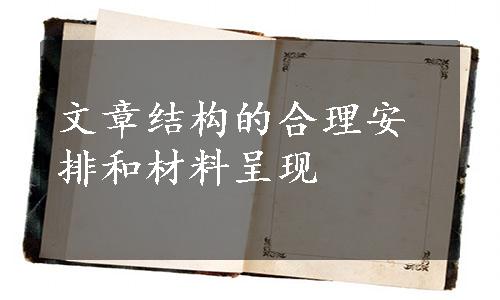 文章结构的合理安
排和材料呈现